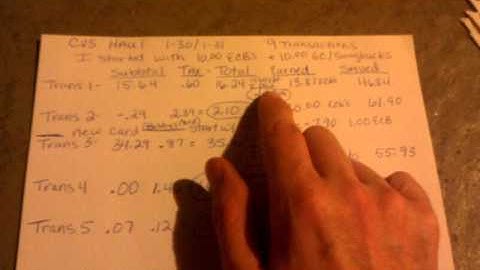 CVS HAUL 1-30/1-31 9 Transactions
I started with 10.00 ECBs + 10.00 GC/
Subtotal Tax Total Earned Saved
Trans 1- 15.64 .60 16.24 13.87 ECB 46.84
Trans 2- -.29 2.39 = 2.10 0.00 ECB's 61.90
new card Start w/ 7.90 1.00 ECB
Trans 3- 34.29 .97 = 35 55.93
Trans 4 .00 1.4
Trans 5 .07 .12